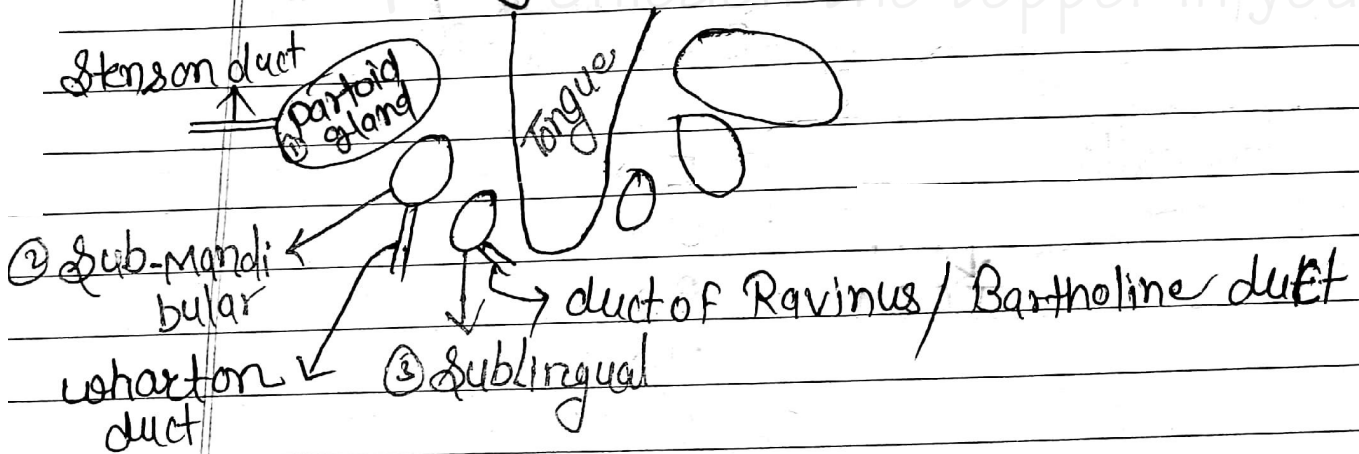 Stenson duct
① Partoid
gland
Tongue
② Sub-Mandi
bular
duct of Ravinus / Bartholine duct
wharton
duct
③ Sublingual